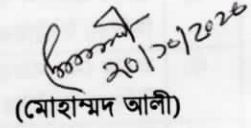 ২০/১০/২০২০
(মোহাম্মদ আলী)